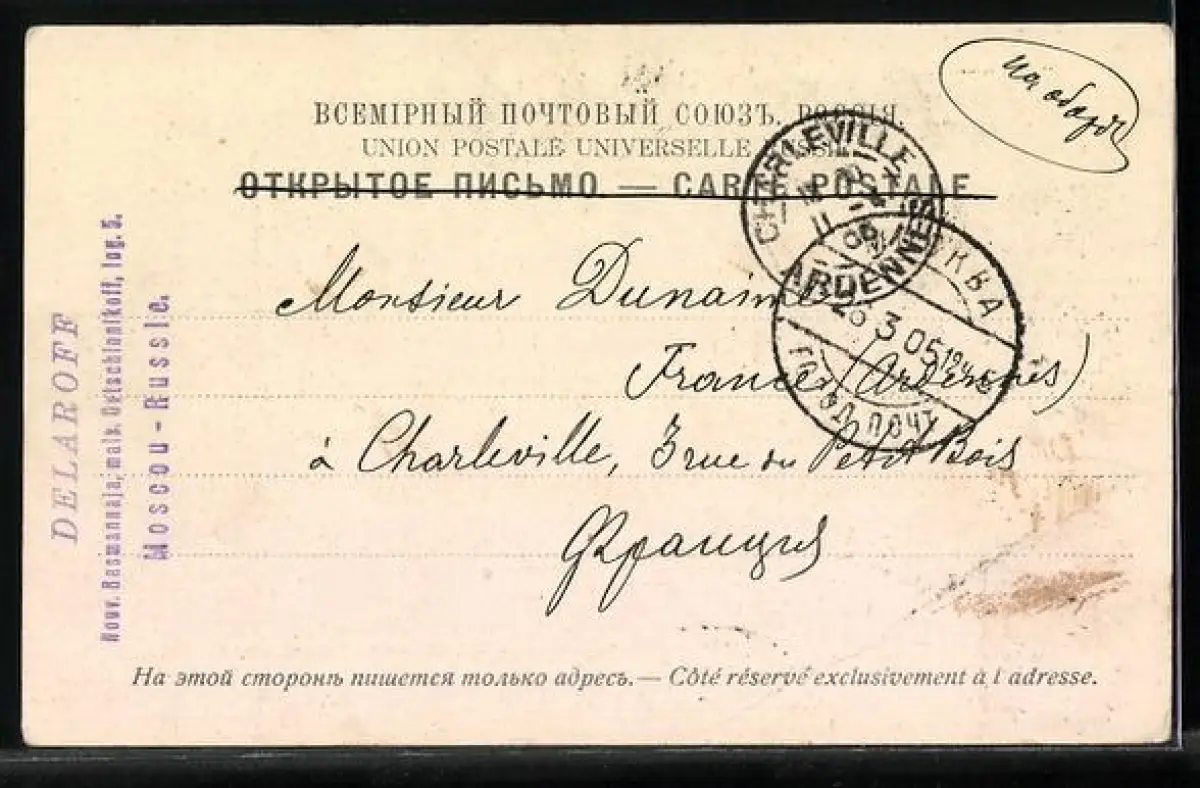 на оборотѣ
ВСЕМІРНЫЙ ПОЧТОВЫЙ СОЮЗЪ. РОССІЯ.
UNION POSTALE UNIVERSELLE. RUSSIE.
ОТКРЫТОЕ ПИСЬМО. — CARTE POSTALE
CHARLEVILLE
ARDENNES
МОСКВА
26 3 05
ГОРОД. ПОЧТ
Monsieur
France (Ardennes)
à Charleville, 3 rue du Petit Bois
Франция
DELAROFF
Nouv. Basmannaja, maik. Detschinnikoff, log. 5.
Moscou - Russie.
На этой сторонѣ пишется только адресъ. — Côté réservé exclusivement à l adresse.